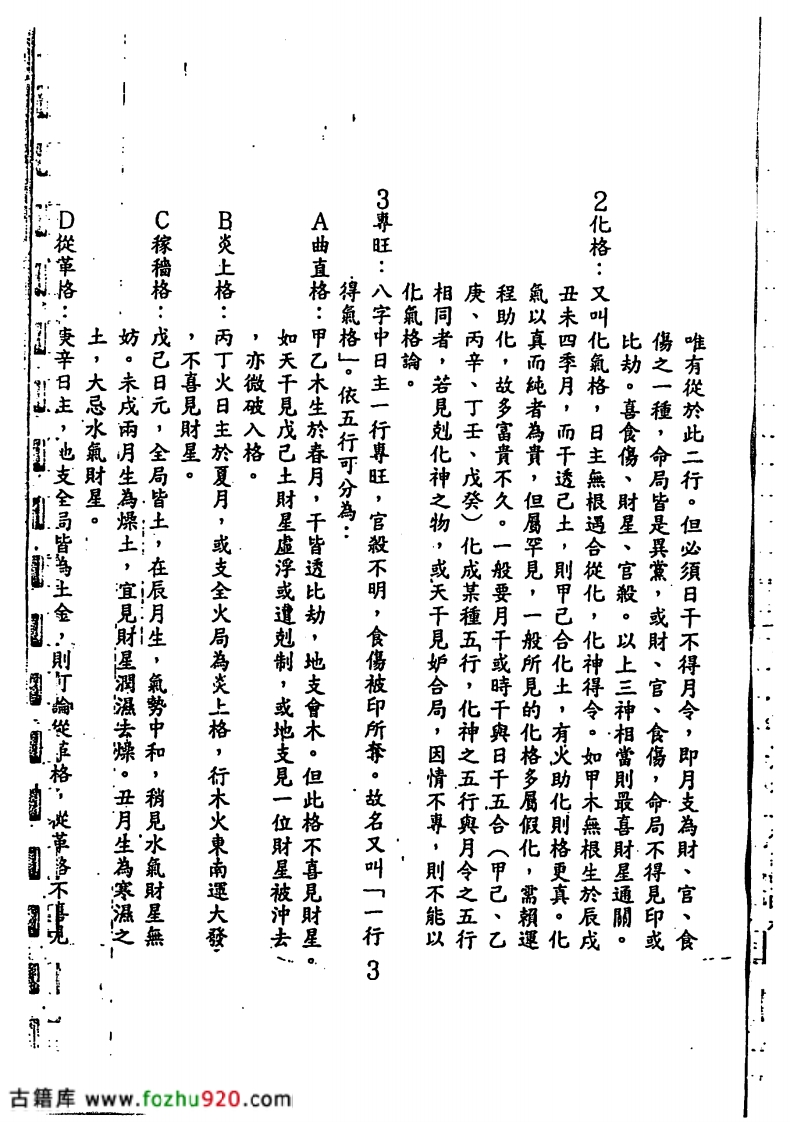 唯有從於此二行。但必須日干不得月令，即月支為財、官、食
傷之一種，命局皆是異黨，或財、官、食傷，命局不得見印或
比劫。喜食傷、財星、官殺。以上三神相當則最喜財星通關。
2化格：又叫化氣格，日主無根遇合從化，化神得令。如甲木無根生於辰戌
丑未四季月，而干透己土，則甲己合化土，有火助化則格更真。化
氣以真而純者為貴，但屬罕見，一般所見的化格多屬假化，需賴運
程助化，故多富貴不久。一般要月干或時干與日干五合（甲己、乙
庚、丙辛、丁壬、戊癸）化成某種五行，化神之五行與月令之五行
相同者，若見剋化神之物，或天干見妒合局，因情不專，則不能以
化氣格論。
3專旺：八字中日主一行專旺，官殺不明，食傷被印所奪。故名又叫「一行
得氣格」。依五行可分為：
A曲直格：甲乙木生於春月，干皆透比劫，地支會木。但此格不喜見財星。
如天干見戊己土財星虛浮或遭剋制，或地支見一位財星被沖去
，亦微破入格。
B炎上格：丙丁火日主於夏月，或支全火局為炎上格，行木火東南運大發
，不喜見財星。
C稼穡格：戊己日元，全局皆土，在辰月生，氣勢中和，稍見水氣財星無
妨。未戌兩月生為燥土，宜見財星潤濕去燥。丑月生為寒濕之
土，大忌水氣財星。
D從革格：庚辛日主，地支全局皆為土金，則可論從革格，從革格不喜見
3
古籍库 www.fozhu920.com